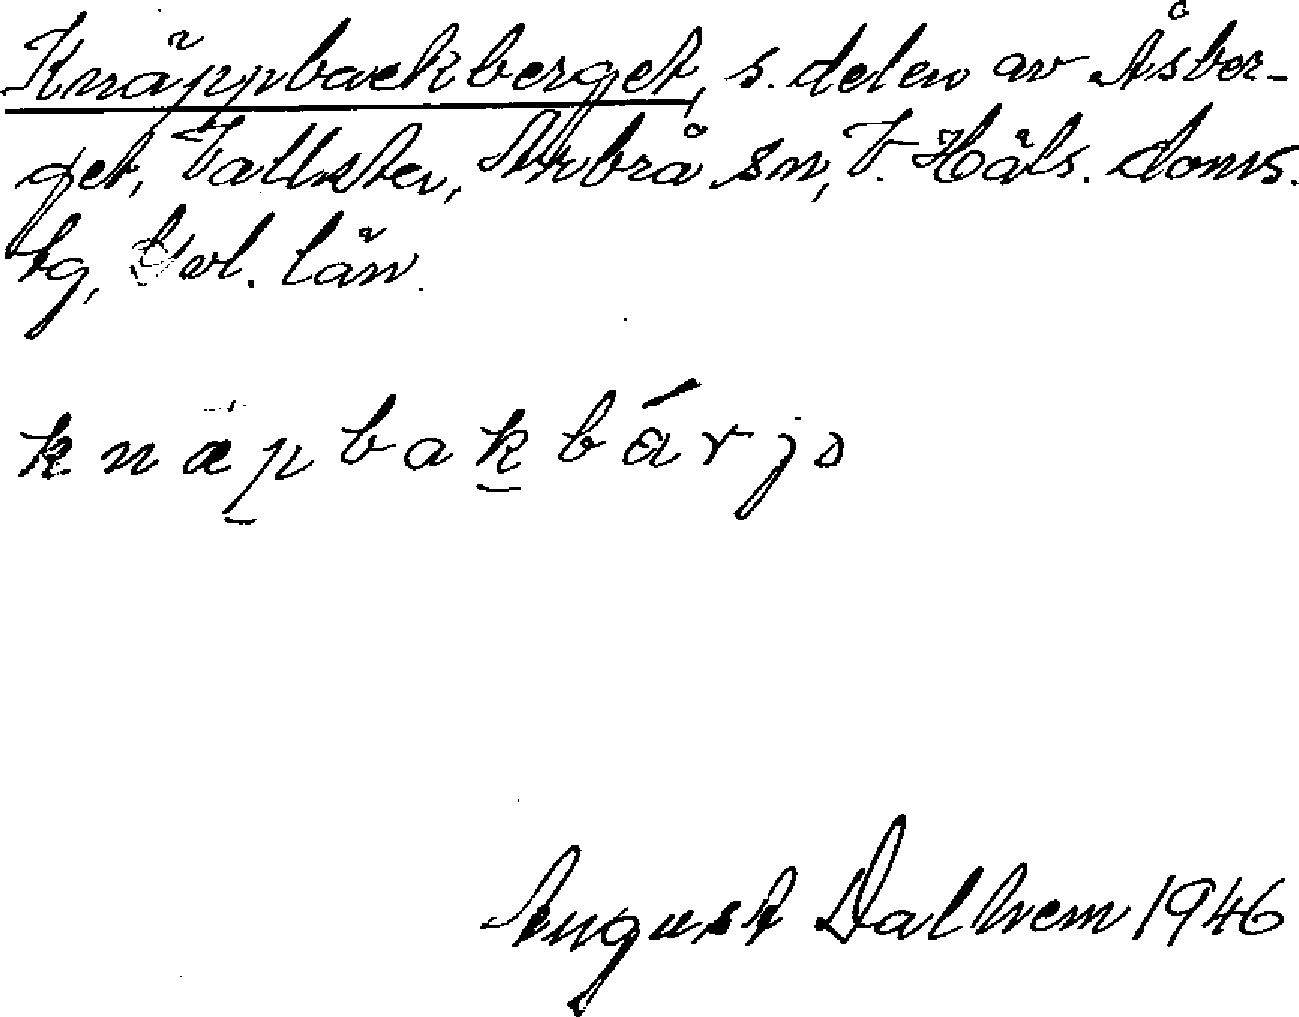 Knäppbackberget, s. delen av Åsber-
get, Vallsten, Arbrå sn, V. Häls. doms.
tg, Gvl. län.
knäpbakbárjə
August Dalhem 1946